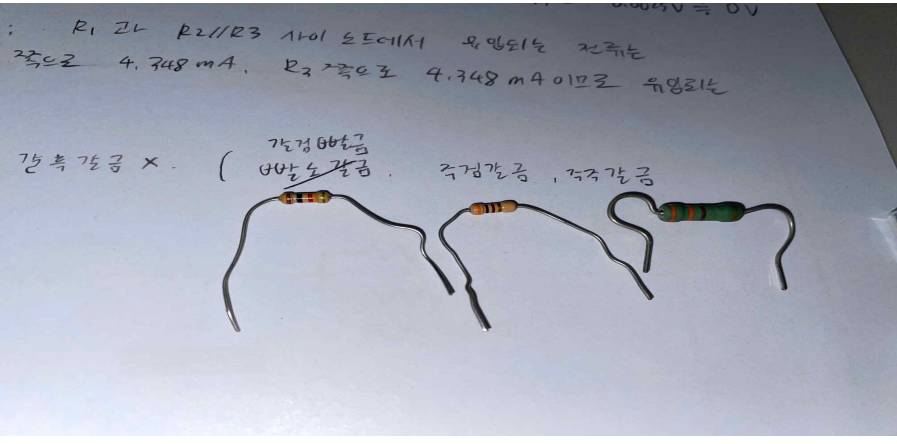 0.0025V ≒ 0V
: R1 과 R2//R3 사이 노드에서 유입되는 전류는
쪽으로 4.348mA, R3쪽으로 4.348mA이므로 유입되는
갈검빨금
갈흑갈금 X. ( 빨노갈금. 주검갈금, 적주갈금